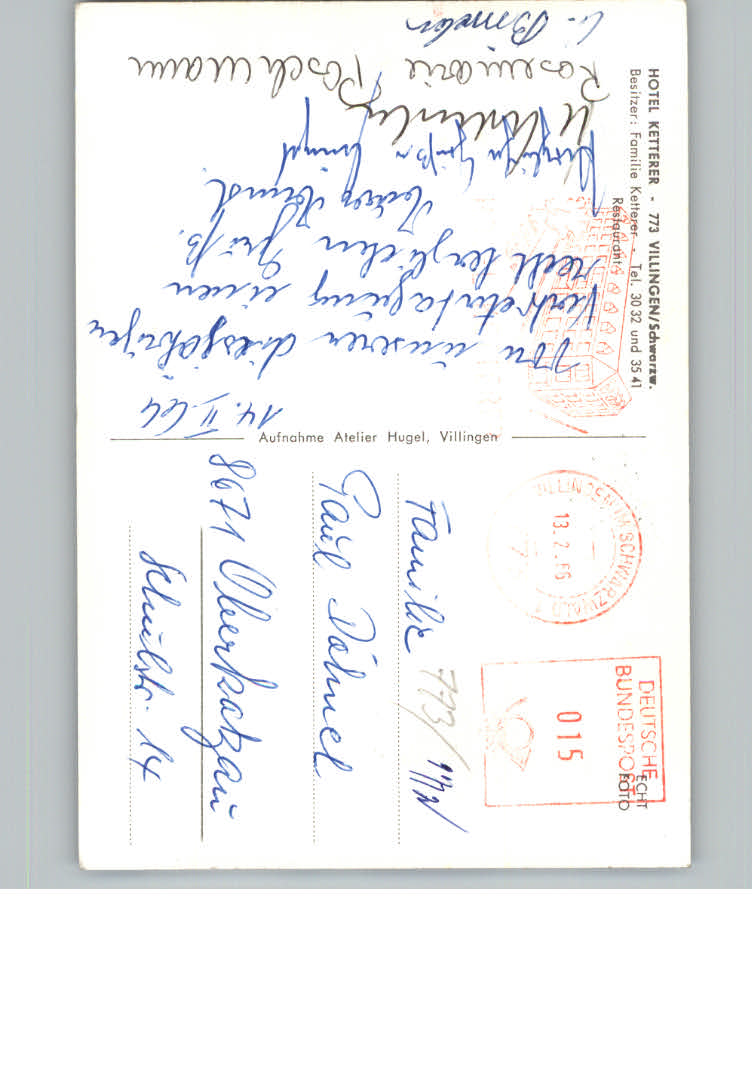 HOTEL KETTERER - 773 VILLINGEN/Schwarzw.
Besitzer: Familie Ketterer - Tel. 3032 und 3541
Restaurant
14. II. 66
Von unseren diesjährigen
Vertretertagung einen
recht herzlichen Gruß.
Herzliche Grüße
Rosemarie Poschmann
Aufnahme Atelier Hugel, Villingen
VILLINGEN IM SCHWARZWALD 1
13.2.66
DEUTSCHE
BUNDESPOST
015
ECHT
FOTO
Familie
Paul Döhnel
8671 Oberkotzau
Schulstr. 14
773/